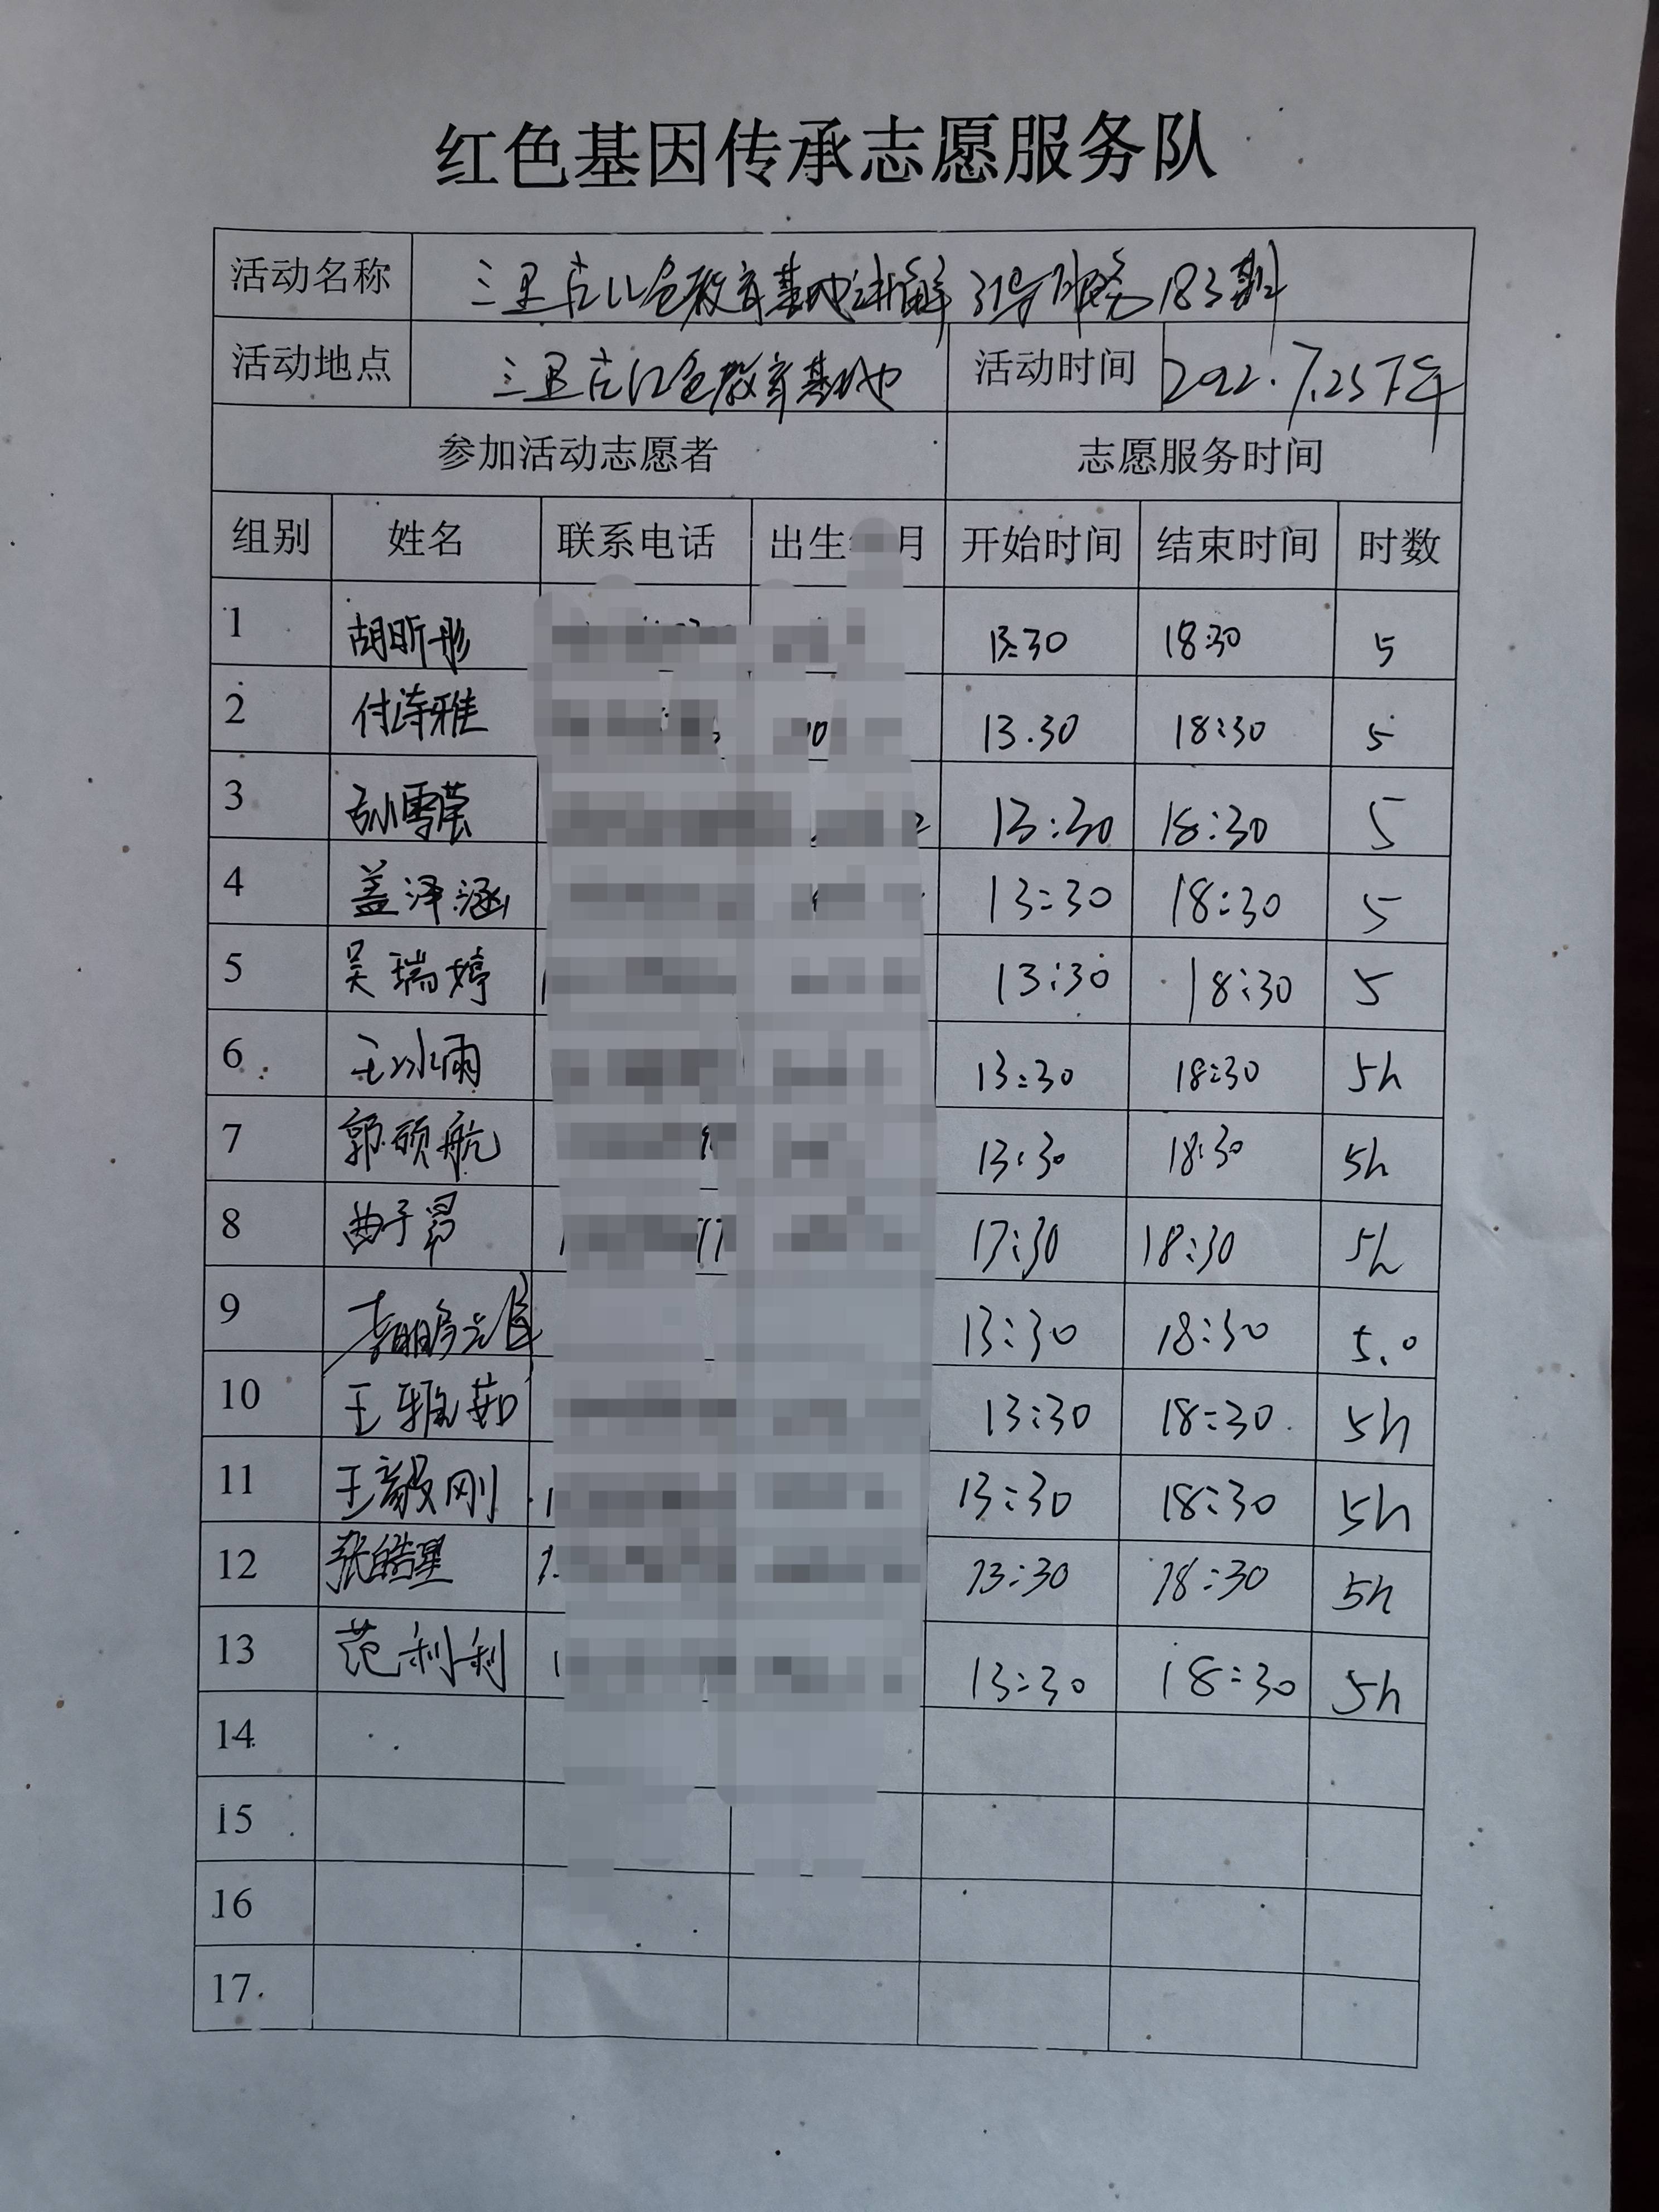 红色基因传承志愿服务队
活动名称 三里店红色教育基地讲解引导服务183期
活动地点 三里店红色教育基地 活动时间 2022.7.25下午
参加活动志愿者 志愿服务时间
组别 姓名 联系电话 出生 月 开始时间 结束时间 时数
1 胡昕彤 13:30 18:30 5
2 付诗雅 13.30 18:30 5
3 孙雪莹 13:30 18:30 5
4 盖泽涵 13:30 18:30 5
5 吴瑞婷 13:30 18:30 5
6 王冰雨 13:30 18:30 5h
7 郭硕航 13:30 18:30 5h
8 曲子昂 13:30 18:30 5h
9 13:30 18:30 5.0
10 王雅茹 13:30 18:30 5h
11 王毅刚 13:30 18:30 5h
12 张皓星 13:30 18:30 5h
13 范利利 13:30 18:30 5h
14
15
16
17